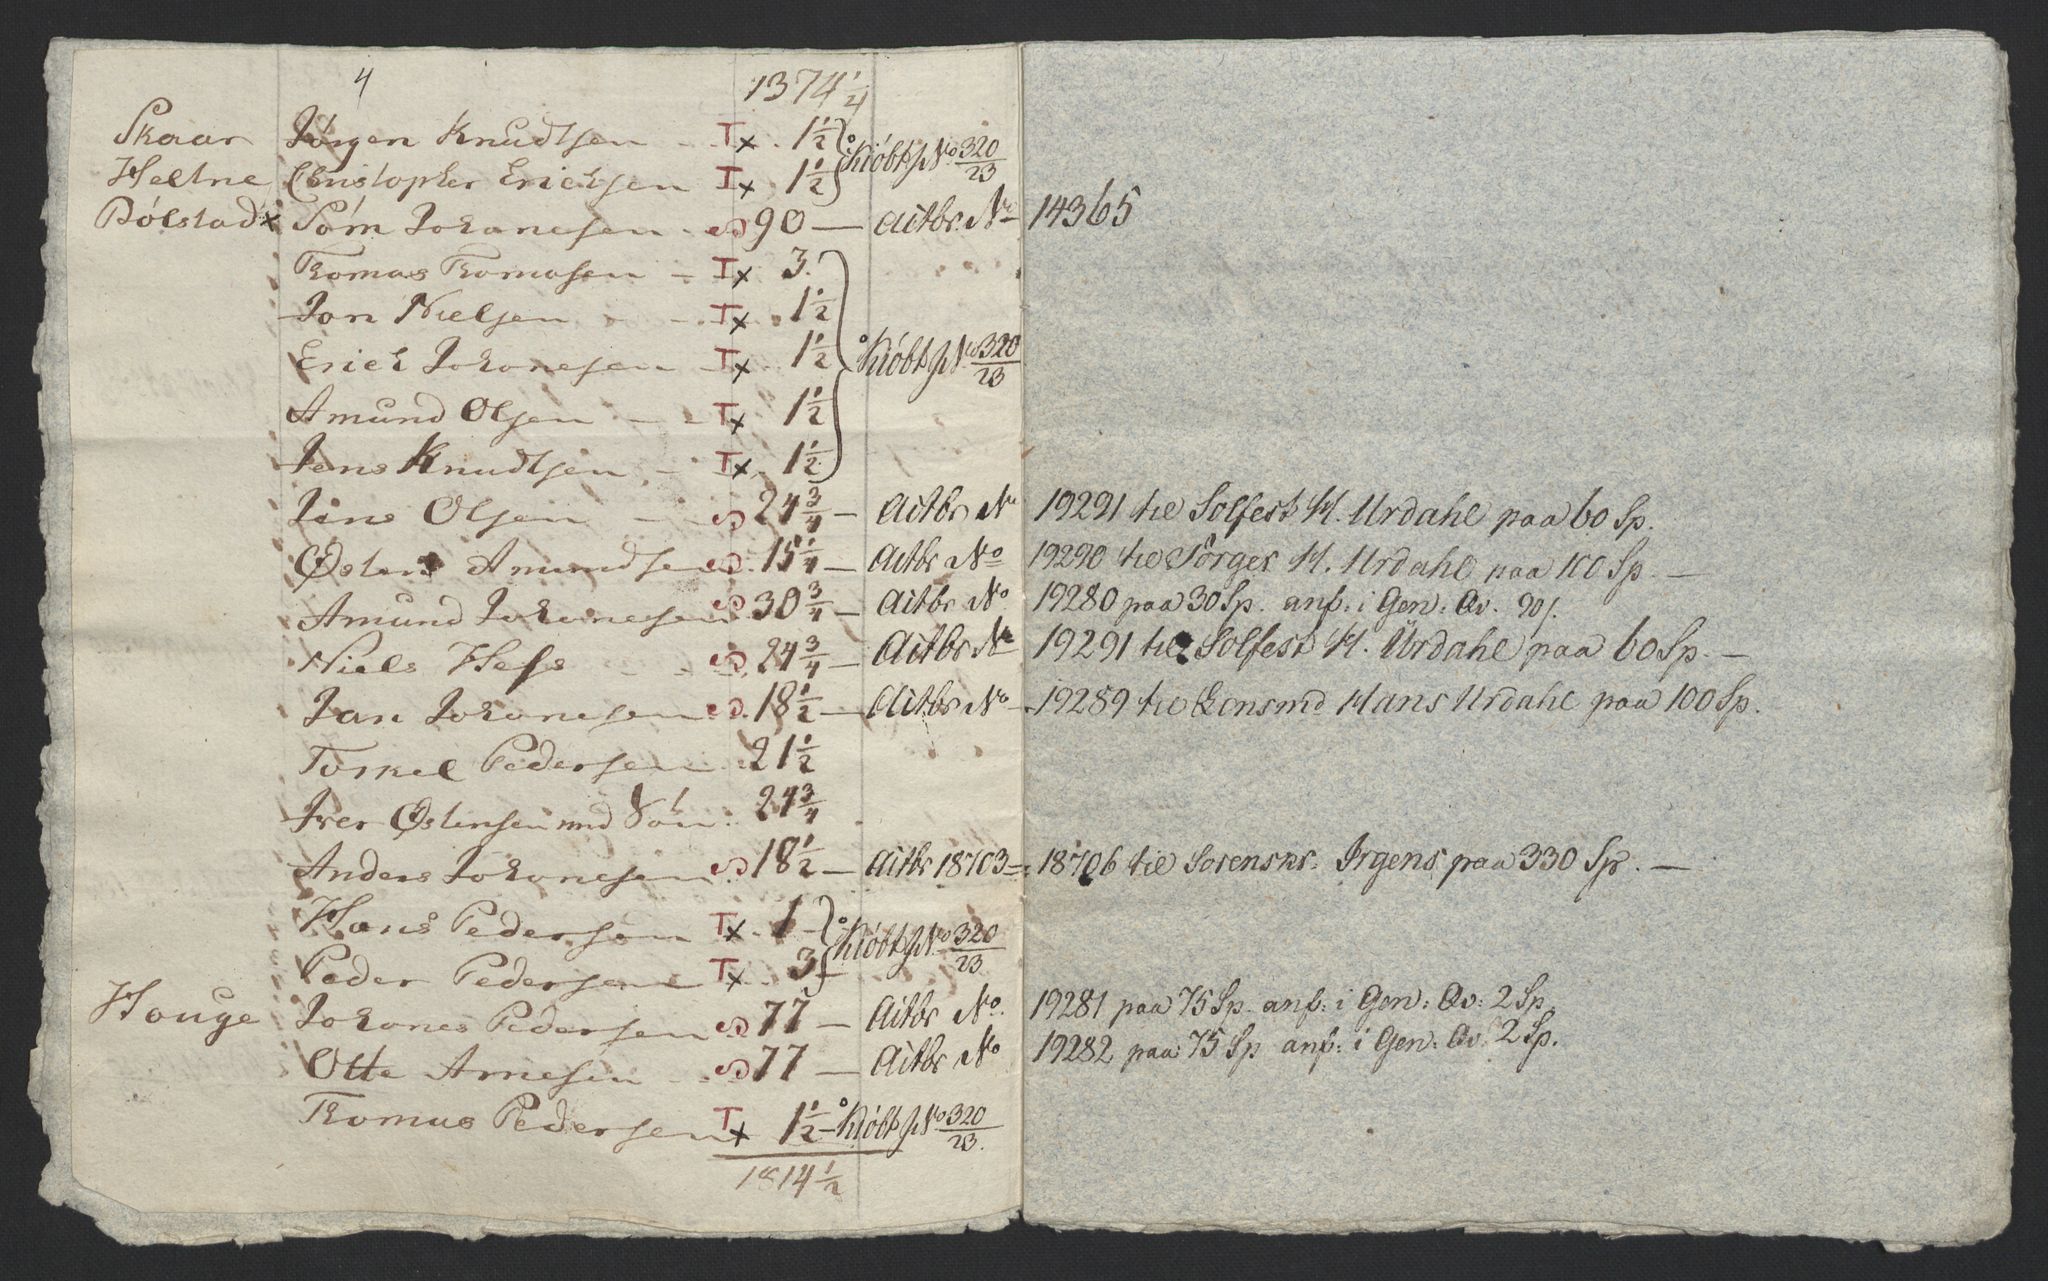 4 1374 1/4
Skaar Jørgen Knudtsen - T x 1 1/2
Kiöbt No 320/23
Heltne Christopher Erichsen T x 1 1/2
Dölstad x Sórn Johanesen - S 90 — Aitbr. No 14365
Thomas Thomasen - T x 3
Jon Nielsen - - T x 1 1/2
Erich Johanesen - T x 1 1/2 Kiöbt No 320/23
Amund Olsen - - T x 1 1/2
Jens Knudtsen - T x 1 1/2
Jens Olsen - - S 24 3/4 — Aitbr No 19291 til Solfest H. Urdahl paa 60 Sp.
Østen Amundsen S 15 1/4 — Aitbr No 19290 til Sörger H. Urdahl paa 100 Sp. —
Amund Johanesen S 30 3/4 — Aitbr No 19280 paa 30 Sp. anf: i Gen: Qv. 90/.
Niels Hess - - S 24 3/4 — Aitbr No 19291 til Solfest H. Urdahl paa 60 Sp. —
Jan Johanesen S 18 1/2 — Aitbr No 19289 til Lensmd Hans Urdahl paa 100 Sp.
Torkel Pedersen 21 1/2
Iver Østensen med Sön 24 3/4
Anders Johanesen S 18 1/2 — Aitbr 18703 = 18706 til Sorenskr. Irgens paa 330 Sp. —
Hans Pedersen T x 1
Kiöbt No 320/23
Peder Pedersen T x 3
Houge Johanes Pedersen S 77 — Aitbr No 19281 paa 75 Sp. anf: i Gen: Qv: 2 Sp.
Otte Arnesen - S 77 — Aitbr No 19282 paa 75 Sp anf: i Gen: Qv: 2 Sp.
Thomas Pedersen T x 1 1/2 — Kiöbt No 320/23.
1814 1/2